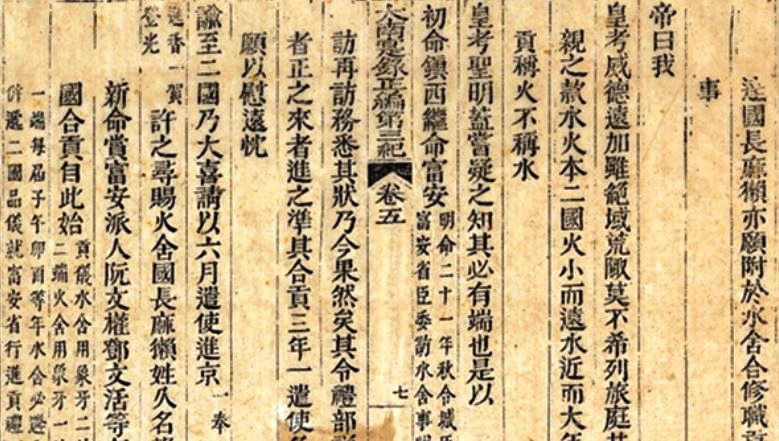 達國長麻獺亦願附於水舍合修職
事
帝曰我
皇考威德遠加雖絕域荒陬莫不希列旅庭
親之款水火本二國火小而遠水近而大
貢稱火不稱水
皇考聖明蓋嘗疑之知其必有端也是以
初命鎮西繼命富安
明命二十一年秋合城
富安省臣委訪水舍事
大南寔錄正編第三紀 卷五 七
訪再訪務悉其狀乃今果然矣其令禮部
者正之來者進之準其合貢三年一遣使
願以慰遠忱
諭至二國乃大喜請以六月遣使進京
一奉
進香一賀
登光
許之尋賜火舍國長麻獺姓久名
新命賞富安派人阮文權鄧文活等
國合貢自此始
貢儀水舍用象牙二
二端火舍用象牙一
一端每屆子午卯酉等年水舍必遞
併遞二國品儀就富安省行進貢禮